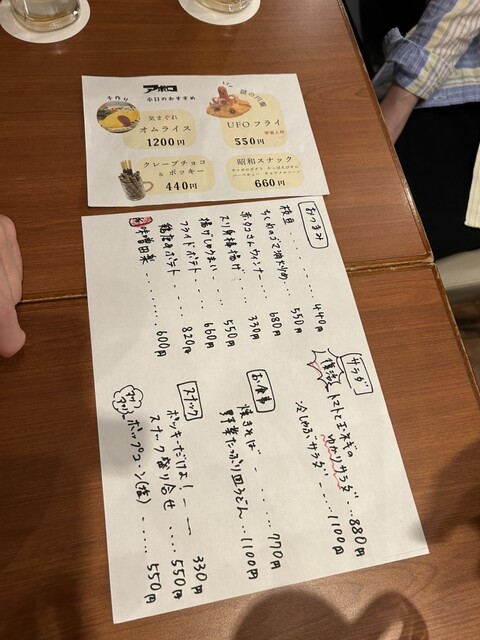 本日のおすすめ
手作り
気まぐれ
オムライス
1200円
謎の円盤
UFOフライ
550円
クレープチョコ
& ポッキー
440円
昭和スナック
660円
おつまみ
枝豆 440円
ちくわのゴマ油炒め 550円
赤タコさんウィンナー 680円
スリ身棒揚げ 330円
揚げしゅうまい 550円
フライドポテト 660円
820円
600円
サラダ
復活 トマトと玉ネギの
ゆかりサラダ 880円
冷しゃぶサラダ 1100円
お食事
焼きそば 770円
野菜たっぷり皿うどん 1100円
スナック
ポッキーだけよ! 330円
スナック盛り合せ 550円
ポップコーン(塩) 550円